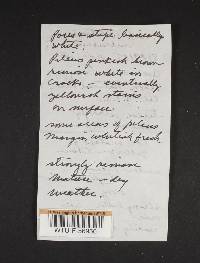 Pores & stipe basically
white.
Pileus pinkish brown
rimose white in
cracks — eventually
yellowish stains
on surface
some areas of pileus
margin whitish fresh
strongly rimose
mature — dry
weather.